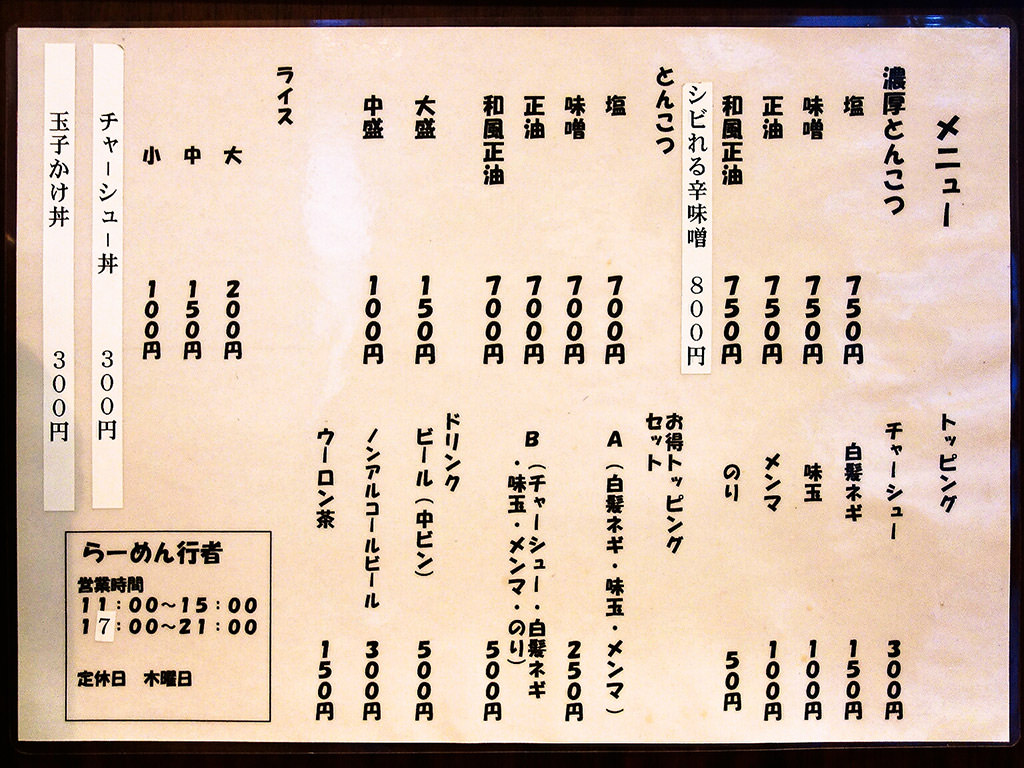 メニュー
濃厚とんこつ
塩 750円
味噌 750円
正油 750円
和風正油 750円
シビれる辛味噌 800円
とんこつ
塩 700円
味噌 700円
正油 700円
和風正油 700円
大盛 150円
中盛 100円
ライス
大 200円
中 150円
小 100円
チャーシュー丼 300円
玉子かけ丼 300円
トッピング
チャーシュー 300円
白髪ネギ 150円
味玉 100円
メンマ 100円
のり 50円
お得トッピング
セット
A(白髪ネギ・味玉・メンマ)
250円
B(チャーシュー・白髪ネギ
・味玉・メンマ・のり)
500円
ドリンク
ビール(中ビン) 500円
ノンアルコールビール 300円
ウーロン茶 150円
らーめん行者
営業時間
11:00～15:00
17:00～21:00
定休日 木曜日